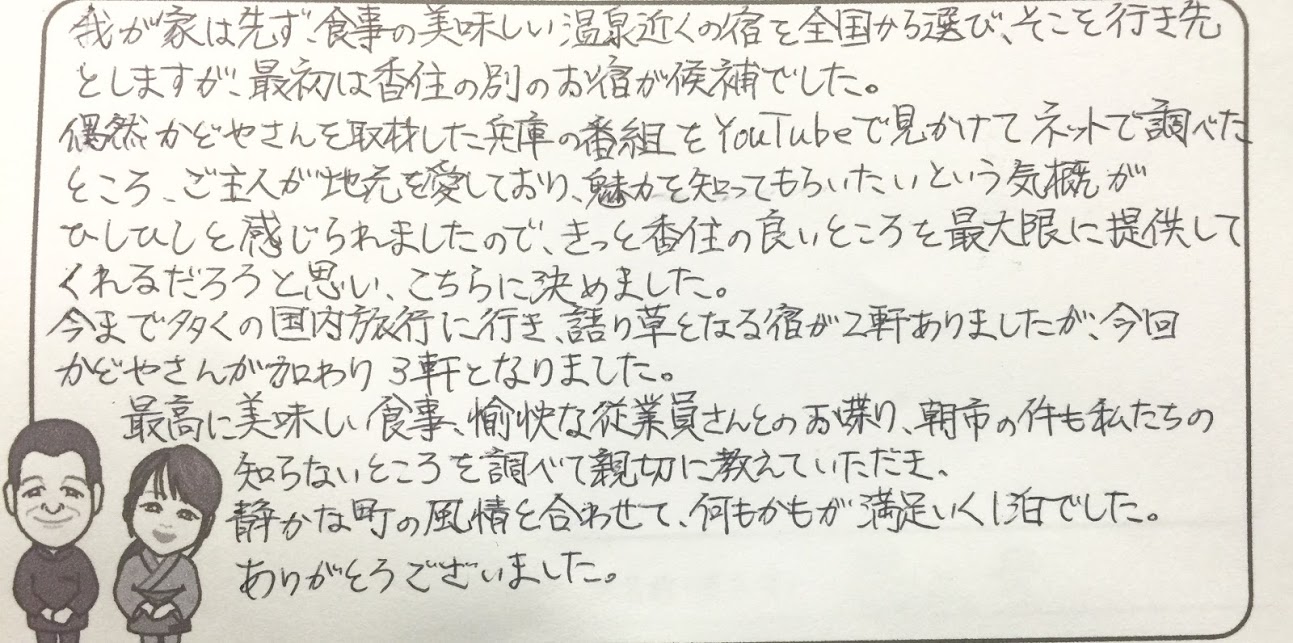 我が家は先ず、食事の美味しい温泉近くの宿を全国から選び、そこを行き先
としますが、最初は香住の別のお宿が候補でした。
偶然かどやさんを取材した兵庫の番組をYouTubeで見かけてネットで調べた
ところ、ご主人が地元を愛しており、魅力を知ってもらいたいという気概が
ひしひしと感じられましたので、きっと香住の良いところを最大限に提供して
くれるだろうと思い、こちらに決めました。
今まで多くの国内旅行に行き、語り草となる宿が2軒ありましたが、今回
かどやさんが加わり3軒となりました。
最高に美味しい食事、愉快な従業員さんとのお喋り、朝市の件も私たちの
知らないところを調べて親切に教えていただき、
静かな町の風情を合わせて、何もかもが満足いく1泊でした。
ありがとうございました。